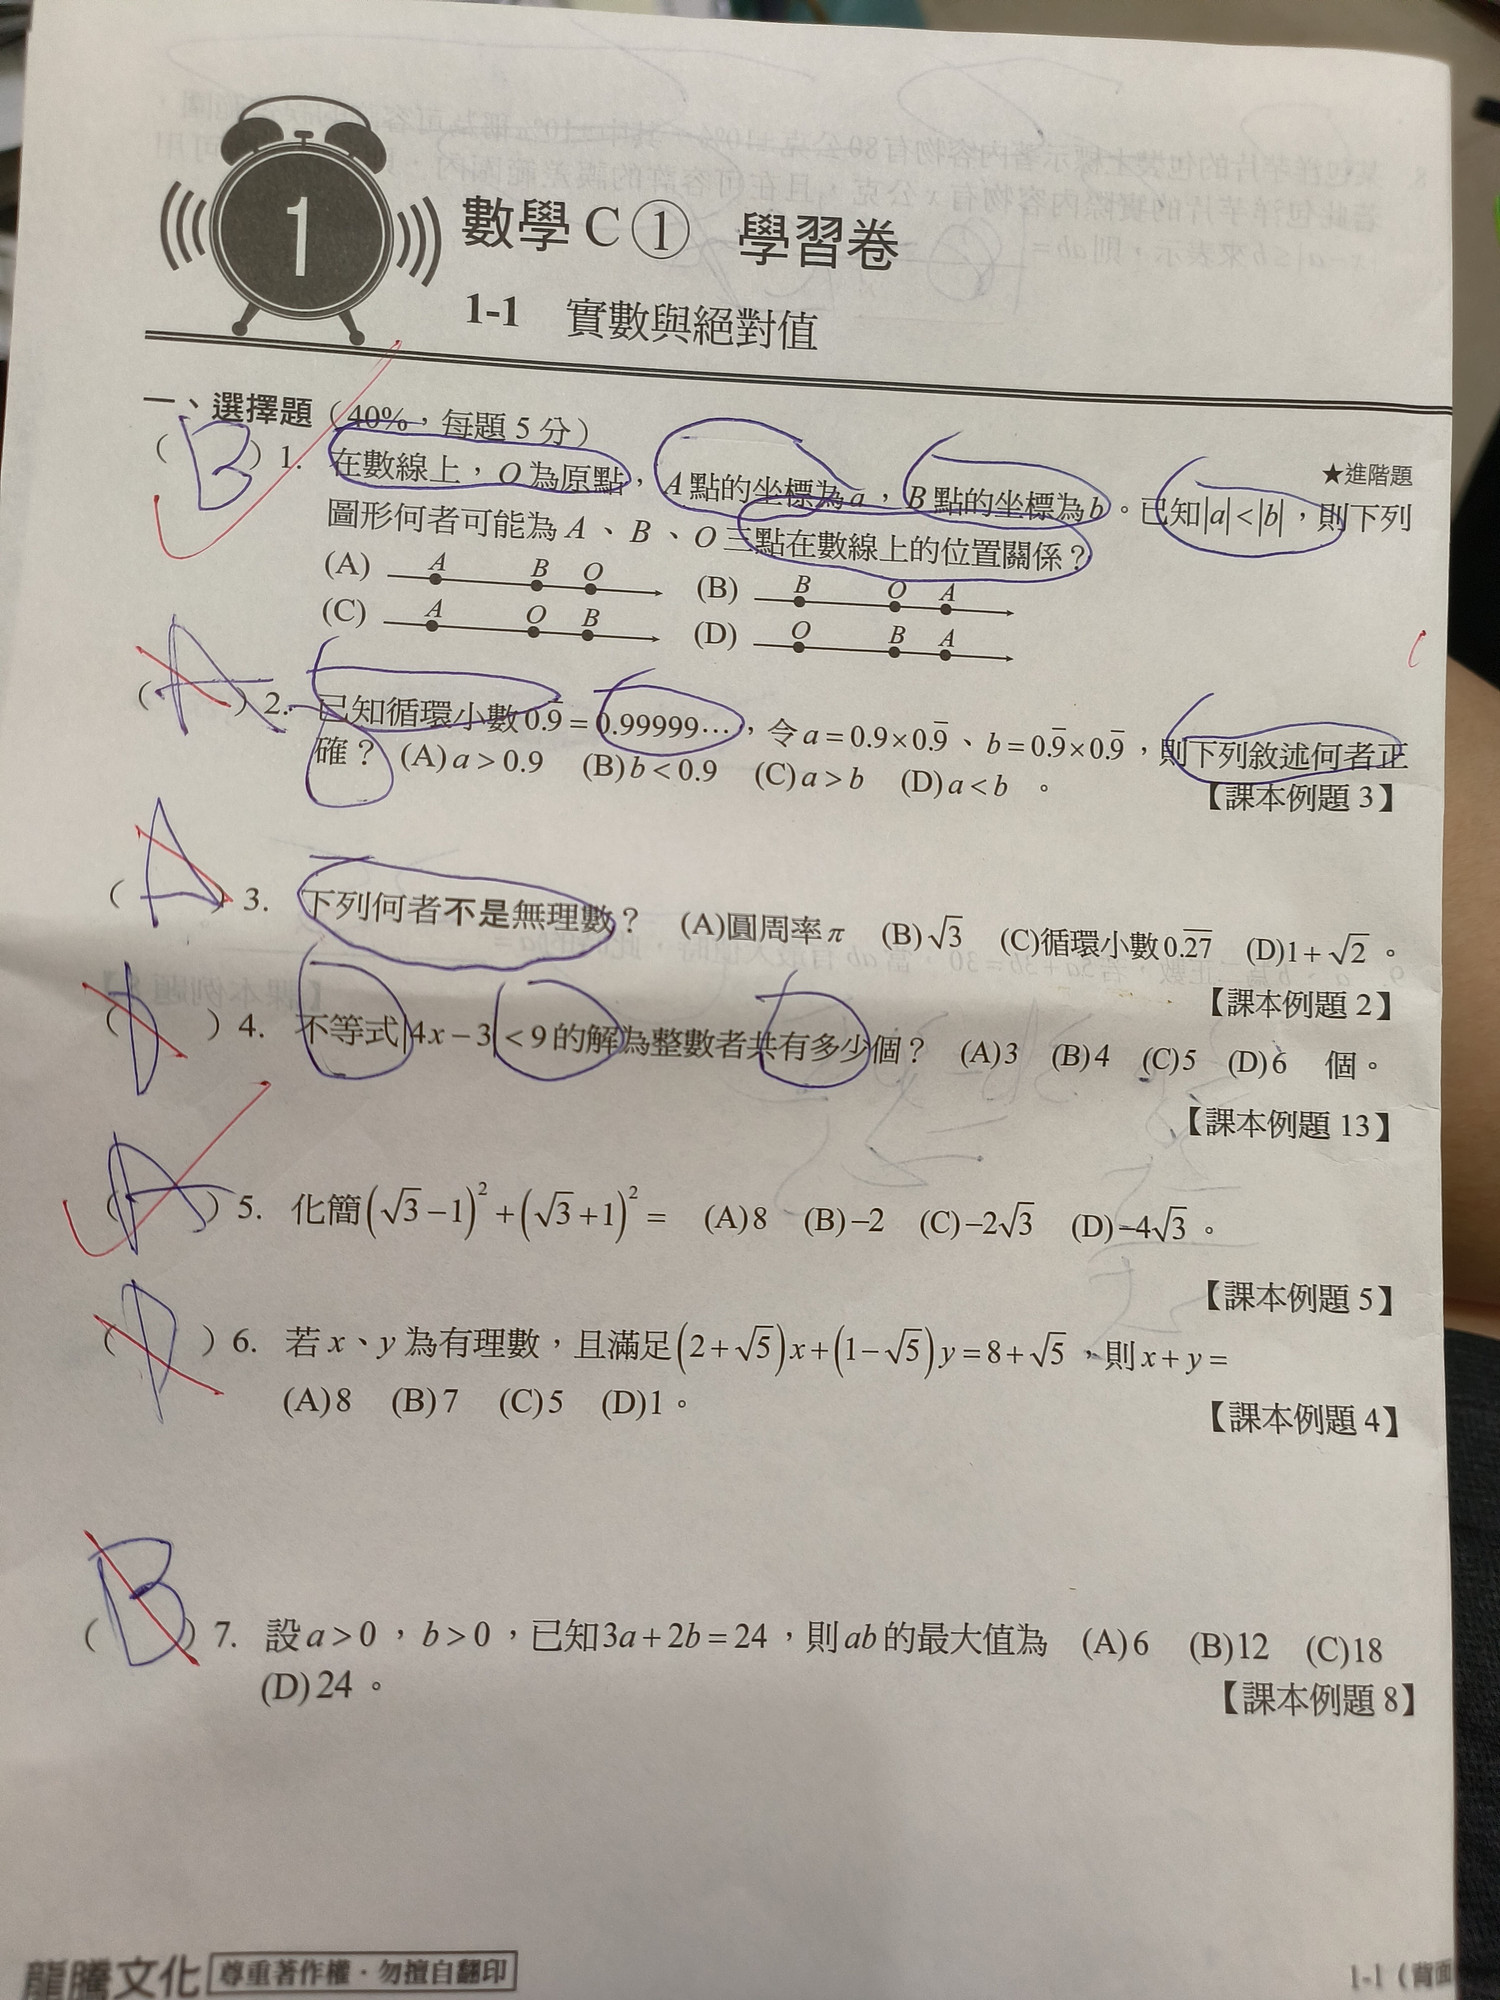 1
數學C① 學習卷
1-1 實數與絕對值
一、選擇題（40%，每題5分）
★進階題
（B）1. 在數線上，O為原點，A點的坐標為a，B點的坐標為b。已知|a|<|b|，則下列
圖形何者可能為A、B、O三點在數線上的位置關係？
(A) A B O (B) B O A
(C) A O B (D) O B A
（A）2. 已知循環小數0.9̅=0.99999…，令a=0.9×0.9̅、b=0.9̅×0.9̅，則下列敘述何者正
確？ (A)a>0.9 (B)b<0.9 (C)a>b (D)a<b 。
【課本例題3】
（A）3. 下列何者不是無理數？ (A)圓周率π (B)√3 (C)循環小數0.2̅7̅ (D)1+√2 。
【課本例題2】
（D）4. 不等式|4x−3|<9的解為整數者共有多少個？ (A)3 (B)4 (C)5 (D)6 個。
【課本例題13】
（A）5. 化簡(√3−1)²+(√3+1)²= (A)8 (B)−2 (C)−2√3 (D)−4√3 。
【課本例題5】
（D）6. 若x、y為有理數，且滿足(2+√5)x+(1−√5)y=8+√5，則x+y=
(A)8 (B)7 (C)5 (D)1。
【課本例題4】
（B）7. 設a>0，b>0，已知3a+2b=24，則ab的最大值為 (A)6 (B)12 (C)18
(D)24。
【課本例題8】
龍騰文化 尊重著作權·勿擅自翻印
1-1（背面